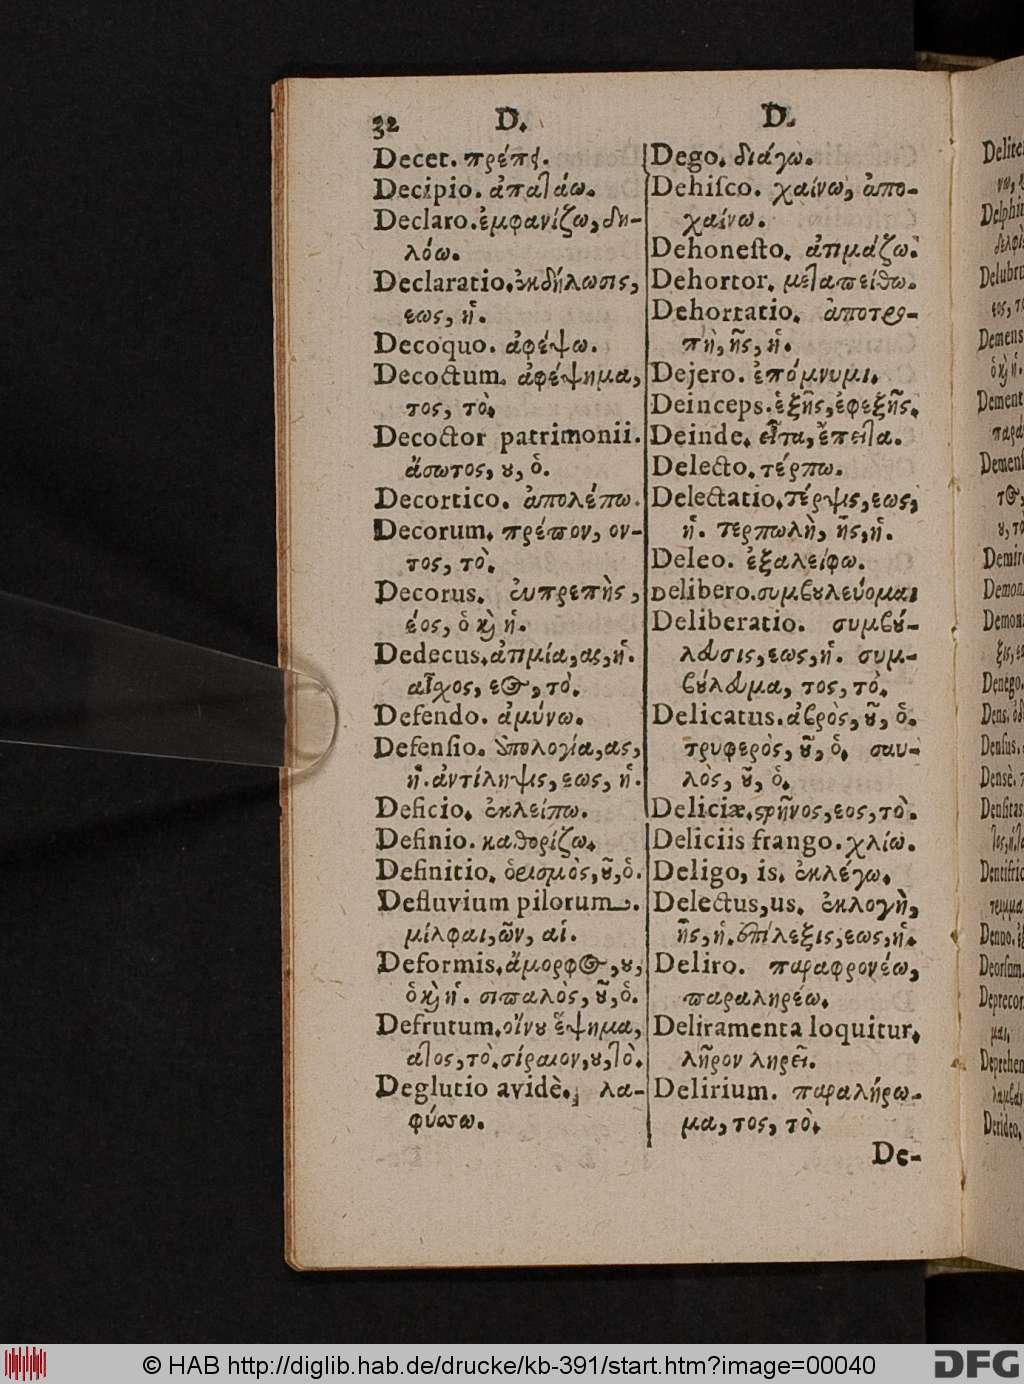 32 D. D.
Decet. πρέπει.
Decipio. ἀπατάω.
Declaro. ἐμφανίζω, δη-
λόω.
Declaratio. ἐκδήλωσις,
εως, ἡ.
Decoquo. ἀφέψω.
Decoctum. ἀφέψημα,
τος, τὸ.
Decoctor patrimonii.
ἄσωτος, ȣ, ὁ.
Decortico. ἀπολέπω.
Decorum. πρέπον, ον-
τος, τὸ.
Decorus. εὐπρεπὴς,
έος, ὁ ϗ ἡ.
Dedecus. ἀτιμία, ας, ἡ.
αἶχος, εος, τὸ.
Defendo. ἀμύνω.
Defenſio. ἀπολογία, ας,
ἡ. ἀντίληψις, εως, ἡ.
Deficio. ἐκλείπω.
Definio. καθορίζω.
Definitio. ὁρισμὸς, ȣ͂, ὁ.
Defluvium pilorum.
μίλφαι, ῶν, αἱ.
Deformis. ἄμορφος, ȣ,
ὁ ϗ ἡ. σιπαλὸς, ȣ͂, ὁ.
Defrutum. οἴνȣ ἕψημα,
ατος, τὸ. σίραιον, ȣ, τὸ.
Deglutio avidè. λα-
φύσσω.
Dego. διάγω.
Dehiſco. χαίνω, ἀπο-
χαίνω.
Dehoneſto. ἀτιμάζω.
Dehortor. μεταπείθω.
Dehortatio. ἀποτρο-
πὴ, ῆς, ἡ.
Dejero. ἐπόμνυμι.
Deinceps. ἑξῆς, ἐφεξῆς.
Deinde. εἶτα, ἔπειτα.
Delecto. τέρπω.
Delectatio. τέρψις, εως,
ἡ. τερπωλὴ, ῆς, ἡ.
Deleo. ἐξαλείφω.
Delibero. συμβȣλεύομαι
Deliberatio. συμβȣ́-
λευσις, εως, ἡ. συμ-
βȣ́λευμα, τος, τὸ.
Delicatus. ἁβρὸς, ȣ͂, ὁ.
τρυφερὸς, ȣ͂, ὁ. σαυ-
λὸς, ȣ͂, ὁ.
Deliciæ. ϛρῆνος, εος, τὸ.
Deliciis frango. χλίω.
Deligo, is. ἐκλέγω.
Delectus, us. ἐκλογὴ,
ῆς, ἡ. ἐπίλεξις, εως, ἡ.
Deliro. παραφρονέω,
παραληρέω.
Deliramenta loquitur.
λῆρον ληρεῖ.
Delirium. παραλήρω-
μα, τος, τὸ.
De-
© HAB http://diglib.hab.de/drucke/kb-391/start.htm?image=00040
DFG